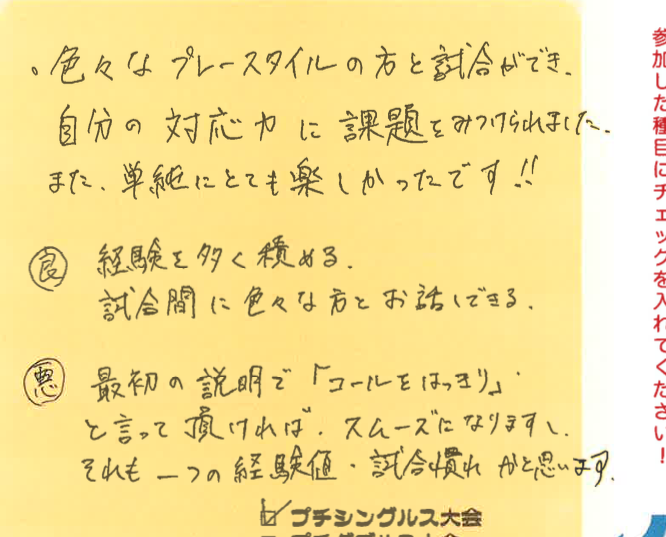 。色々なプレースタイルの方と試合ができ、
自分の対応力に課題をみつけられました。
また、単純にとても楽しかったです!!
良 経験を多く積める。
試合間に色々な方とお話しできる。
悪 最初の説明で「コールをはっきり」
と言って頂ければ、スムーズになりますし、
それも一つの経験値・試合慣れかと思います。
☑プチシングルス大会
参加した種目にチェックを入れてください!